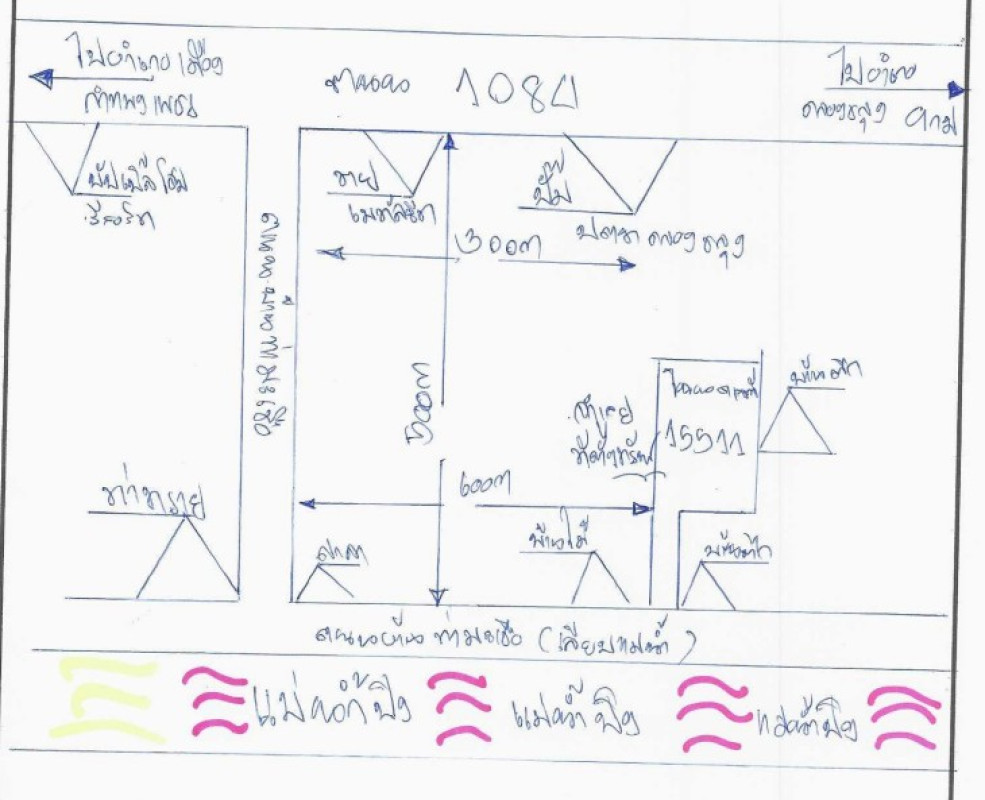 ไปอำเภอเมือง
กำแพงเพชร
ถนน 1084
ไปอำเภอ
คลองขลุง
ขาย
เมทัลชีท
ปั๊ม
ปตท คลองขลุง
300ม
500ม
ท่าทราย
600ม
โฉนดเลขที่
15511
บ้านตึก
ที่ตั้งทรัพย์
ศาลา
บ้านไม้
ถนนบ้าน ท่ามะเขือ (เลียบแม่น้ำ)
แม่น้ำปิง
แม่น้ำปิง
แม่น้ำปิง